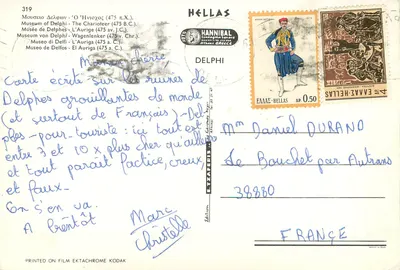 319
Μουσεῖο Δελφῶν - Ὁ Ἡνίοχος (475 π.Χ.)
Museum of Delphi - The Charioteer (475 B.C.)
Musée de Delphes - L'Aurige (475 av. J.C.)
Museum von Delphi - Wagenlenker (475 v. Chr.)
Museo di Delfi - L'Auriga (475 a. C.)
Museo de Delfos - El Auriga (475 a. C.)
HELLAS
HANNIBAL
DELPHI
ΕΛΛΑΣ-HELLAS ΔΡ 0.50
ΕΛΛΑΣ-HELLAS
4
chérie
Carte écrite sur les ruines de
Delphes grouillantes de monde
(et surtout de Français) - Del-
phes - pour - touriste : ici tout est
entre 3 et 10 x plus cher qu'ailleurs
et tout paraît factice, creux,
et faux.
On s'en va.
A bientôt
Marc
Christelle
Mm Daniel DURAND
Le Bouchet par Autrans
38880
FRANCE
PRINTED ON FILM EKTACHROME KODAK